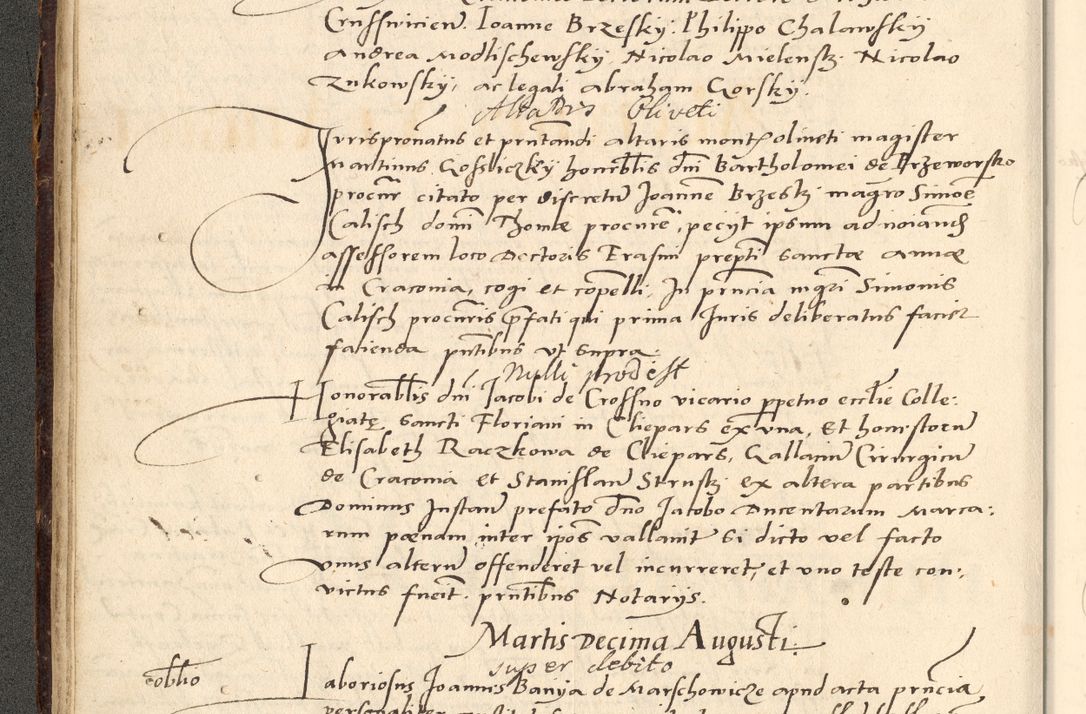 Crussvicien̄. Ioanne Brzesky. Philippo Chalawsky
Andrea Modlischewsky. Nicolao Mielensk. Nicolao
Zukowsky, ac legali Abraham Gorsky.
Altaris Oliveti
Iurispronatus et pn̄tandi altaris mont. oliueti magister
Martinus Gosliczky hon̄rblis dn̄i Bartholomei de Brzeworsko
procur̄ citato per discretū Joannē Brzesk magro Simoē
Calisch domī Thomæ procurē, pecijt ipsum ad noiand̄
assessorem loco Doctoris Erasmi prep̄ti Sanctæ Annæ
in Craconia, cogi et cōpelli, In pn̄tia mgri Simonis
Calisch procuris p̄fati qui prima Iuris deliberatus faciet
facienda pn̄tibus vt supra
Nulli prodest
Honorablis dn̄i Jacobi de Crossno vicario ppetuo eccl̄ie Colle:
giatę Sancti Floriani in Clepars ex vna, Et honestorū
Elisabeth Raczkowa de Clepars, Gallaciū Cirurgicū
de Craconia et Stanislaū Strusk ex altera partibus
Dominus Instan̄ prefato dn̄o Jacobo Ducentarum Marca:
rum pœnam inter ip̄os vallauit Si dicto vel facto
vnus alterū offenderet vel incurreret, et vno teste con:
victus fuerit. pn̄tibus Notarijs.
Martis Decima Augusti.
super debito
oblio
Laboriosus Joannes Banya de Marschowicze apud acta pn̄cia
personaliter